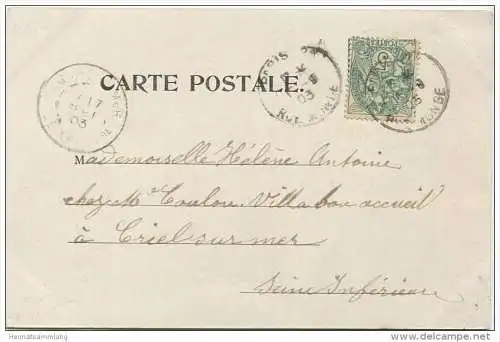 CARTE POSTALE.
PARIS
RUE MONGE
03
17
03
Mademoiselle Hélène Antoine
chez Me Coulon. Villa bon accueil
à Criel sur mer
Seine Inférieure
Heimatsammlung
www.delcampe.net